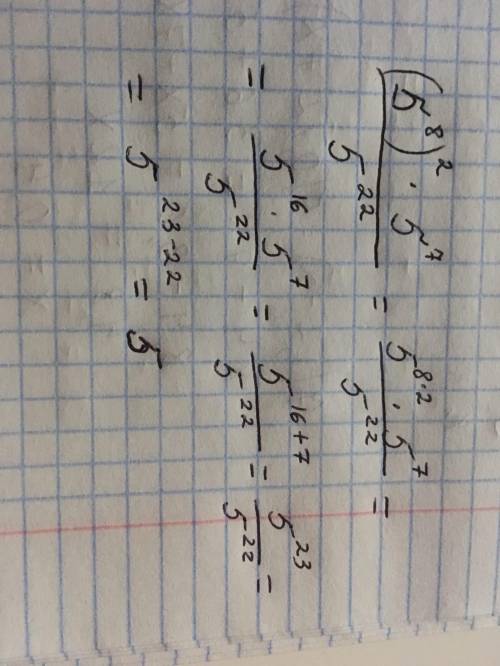 (5^8)^2 · 5^7 / 5^22 = 5^(8·2) · 5^7 / 5^22 =
= 5^16 · 5^7 / 5^22 = 5^(16+7) / 5^22 = 5^23 / 5^22 =
= 5^(23-22) = 5